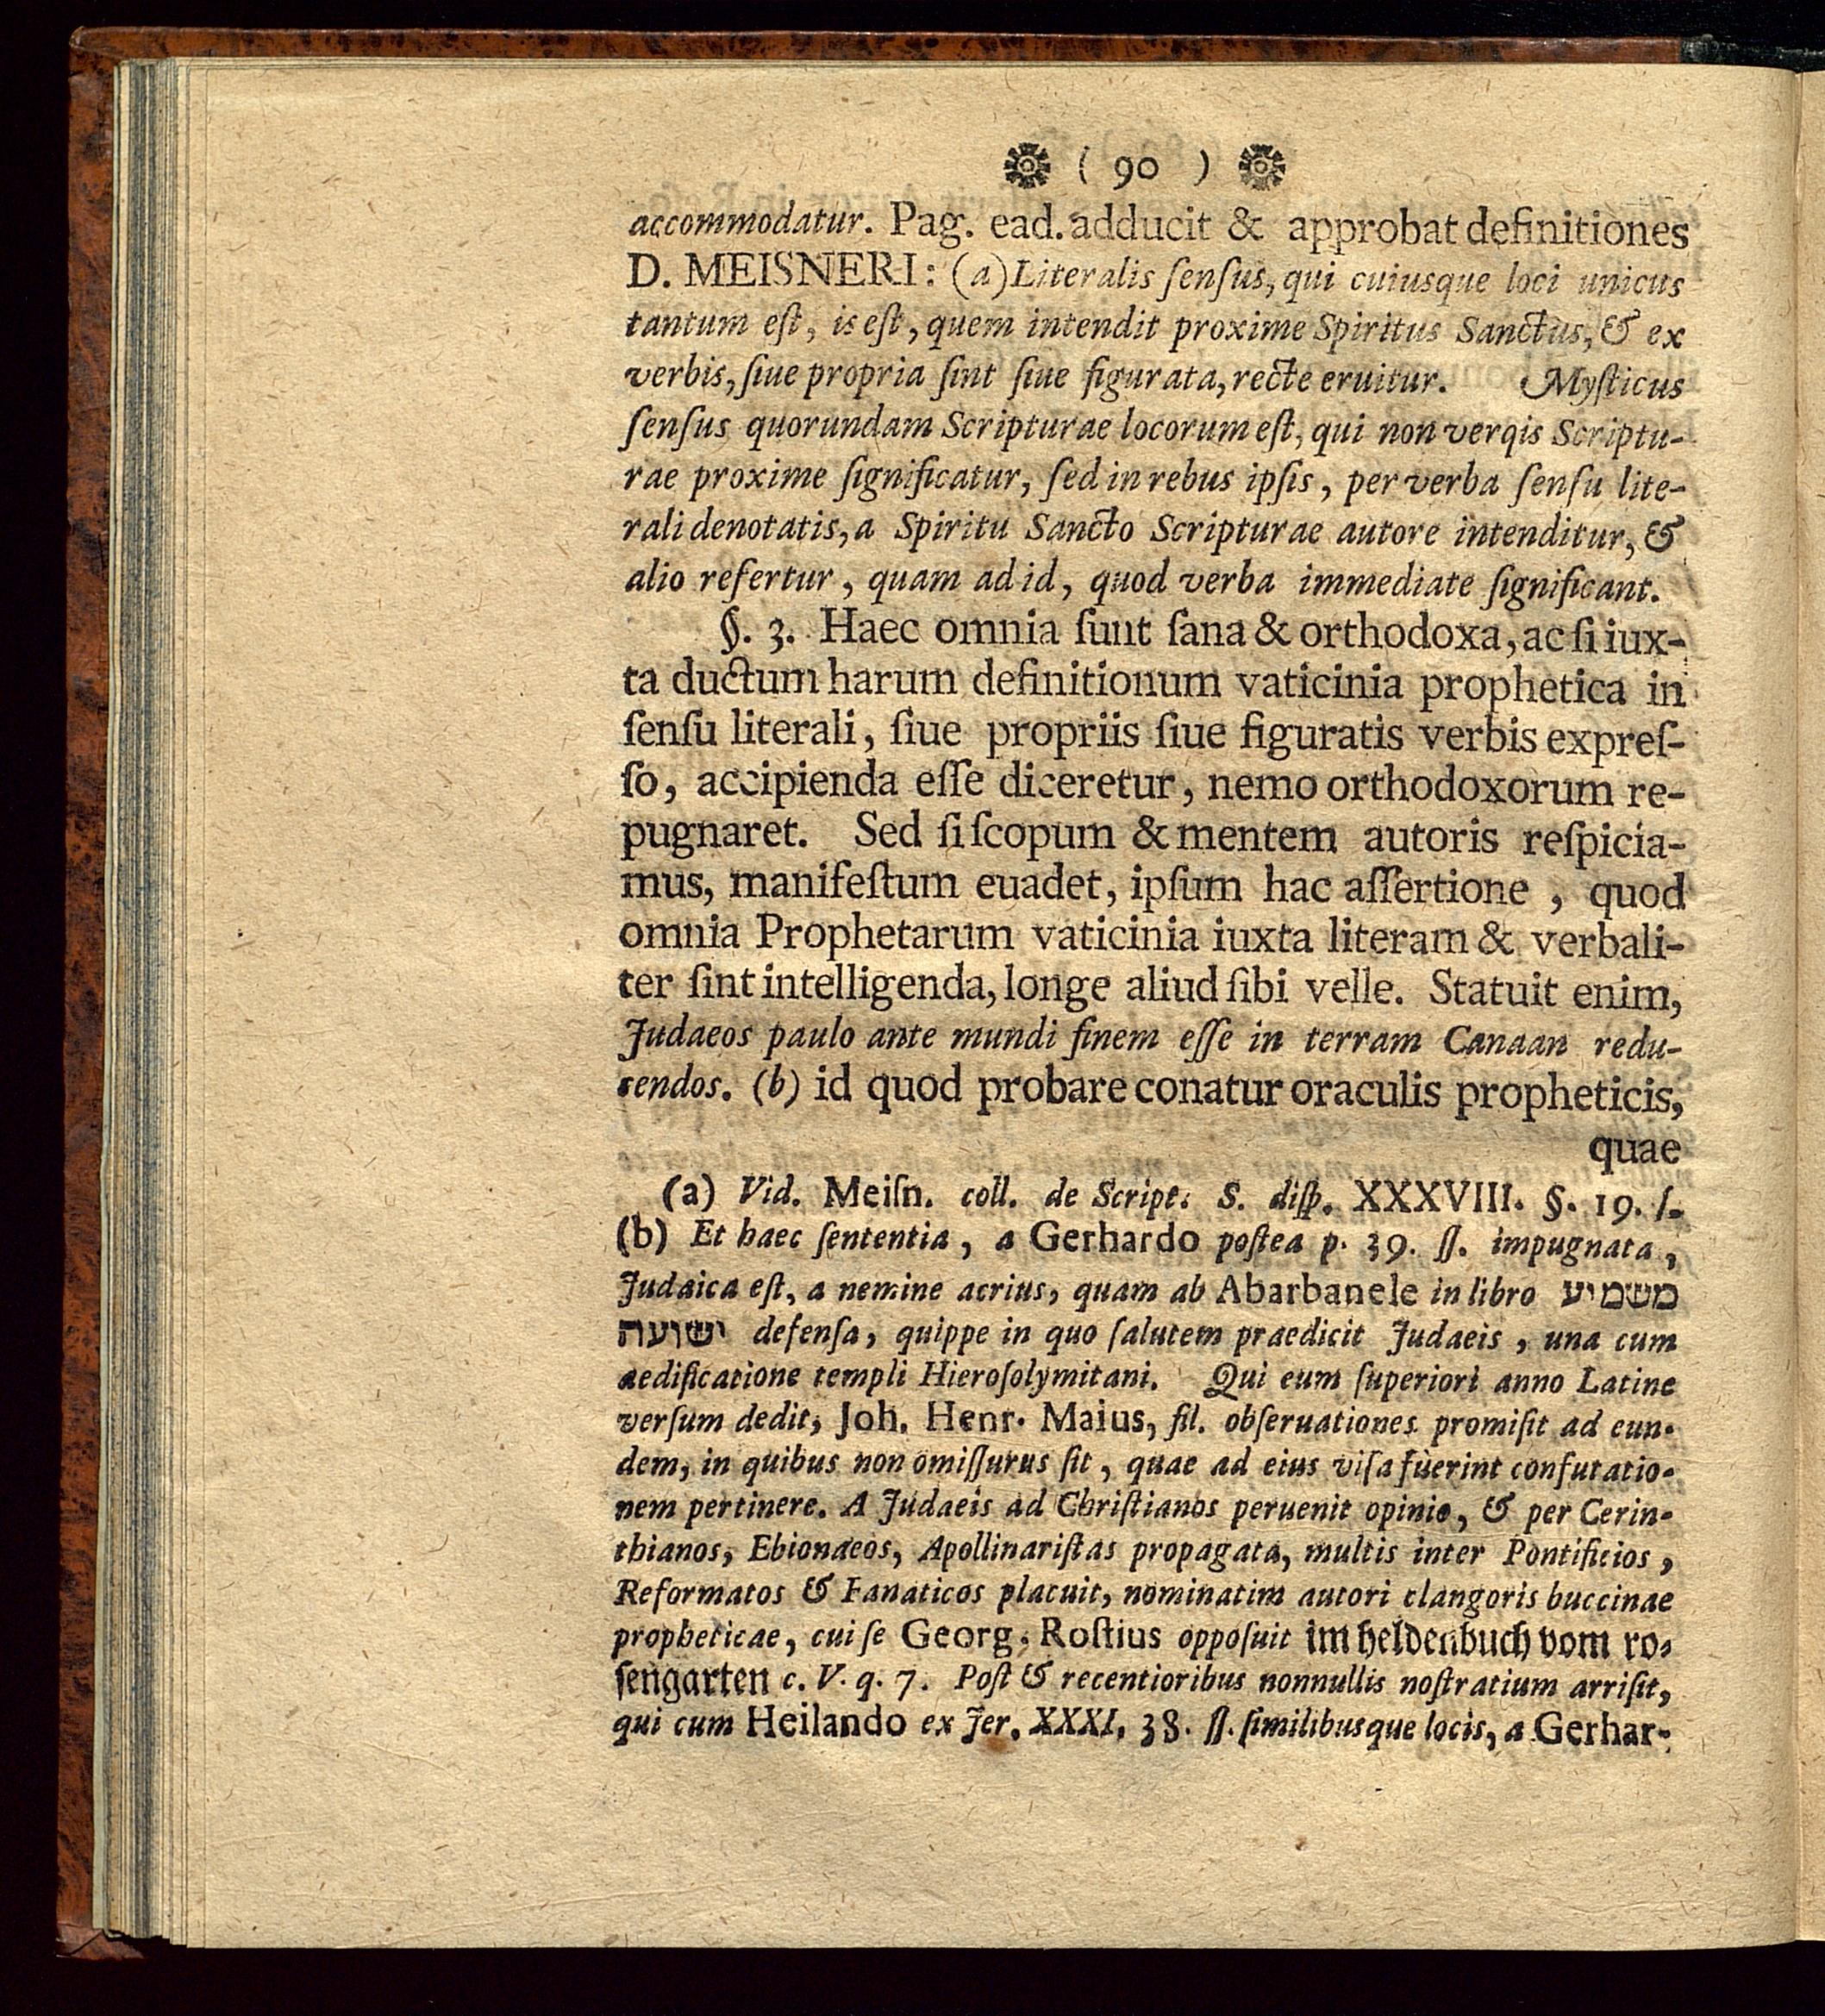 ( 90 )
accommodatur. Pag. ead. adducit & approbat definitiones
D. MEISNERI: (a) Literalis ſenſus, qui cuiusque loci unicus
tantum eſt, is eſt, quem intendit proxime Spiritus Sanctus, & ex
verbis, ſiue propria ſint ſiue figurata, recte eruitur. Myſticus
ſenſus quorundam Scripturae locorum eſt, qui non verqis Scriptu-
rae proxime ſignificatur, ſed in rebus ipſis, per verba ſenſu lite-
rali denotatis, a Spiritu Sancto Scripturae autore intenditur, &
alio refertur, quam ad id, quod verba immediate ſignificant.
§. 3. Haec omnia ſunt ſana & orthodoxa, ac ſi iux-
ta ductum harum definitionum vaticinia prophetica in
ſenſu literali, ſiue propriis ſiue figuratis verbis expreſ-
ſo, accipienda eſſe diceretur, nemo orthodoxorum re-
pugnaret. Sed ſi ſcopum & mentem autoris reſpicia-
mus, manifeſtum euadet, ipſum hac aſſertione, quod
omnia Prophetarum vaticinia iuxta literam & verbali-
ter ſint intelligenda, longe aliud ſibi velle. Statuit enim,
Judaeos paulo ante mundi finem eſſe in terram Canaan redu-
cendos. (b) id quod probare conatur oraculis propheticis,
quae
(a) Vid. Meiſn. coll. de Script. S. diſp. XXXVIII. §. 19. ſ.
(b) Et haec ſententia, a Gerhardo poſtea p. 39. ſſ. impugnata,
Judaica eſt, a nemine acrius, quam ab Abarbanele in libro משמיע
ישועה defenſa, quippe in quo ſalutem praedicit Judaeis, una cum
aedificatione templi Hieroſolymitani. Qui eum ſuperiori anno Latine
verſum dedit, Joh. Henr. Maius, fil. obſeruationes promiſit ad eun-
dem, in quibus non omiſſurus ſit, quae ad eius viſa fuerint confutatio-
nem pertinere. A Judaeis ad Chriſtianos peruenit opinio, & per Cerin-
thianos, Ebionaeos, Apollinariſtas propagata, multis inter Pontificios,
Reformatos & Fanaticos placuit, nominatim autori clangoris buccinae
propheticae, cui ſe Georg. Roſtius oppoſuit im heldenbuch vom ro-
ſengarten c. V. q. 7. Poſt & recentioribus nonnullis noſtratium arriſit,
qui cum Heilando ex Jer. XXXI, 38. ſſ. ſimilibusque locis, a Gerhar-